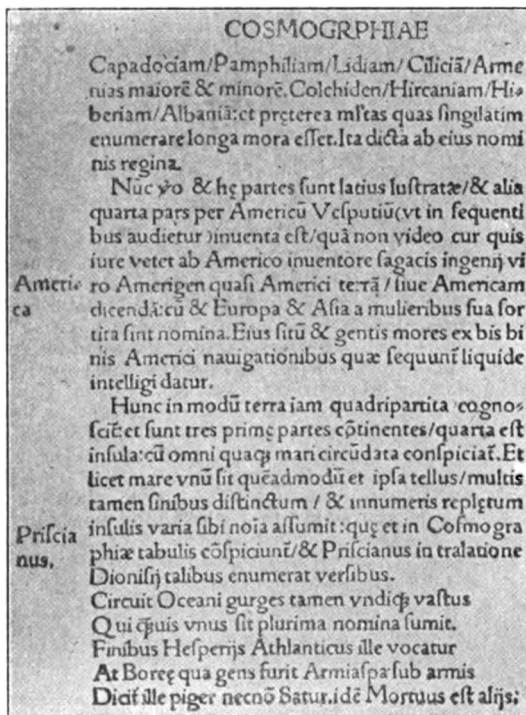 COSMOGRPHIAE
Capadociam/Pamphiliam/Lidiam/Ciliciā/Arme
nias maiorē & minorē. Colchiden/Hircaniam/Hi⸗
beriam/Albaniā: et pręterea mĺtas quas singilatim
enumerare longa mora esset. Ita dicta ab eius nomi
nis regina.
Nūc ꝟo & hę partes sunt latius lustratæ/& alia
quarta pars per Americū Vesputiū(vt in sequenti
bus audietur)inuenta est/quā non video cur quis
iure vetet ab Americo inuentore sagacis ingenij vi
Ameri⸗
ca
ro Amerigen quasi Americi terrā/siue Americam
dicendā: cū & Europa & Asia a mulieribus sua sor
tita sint nomina. Eius sitū & gentis mores ex bis bi
nis Americi nauigationibus quæ sequunt̄ liquide
intelligi datur.
Hunc in modū terra iam quadripartita cognos⸗
scit̄: et sunt tres primę partes cōtinentes/quarta est
insula: cū omni quaqꝫ mari circūdata conspiciat̄. Et
licet mare vnū sit quēadmodū et ipsa tellus/multis
tamen sinibus distinctum/& innumeris repletum
Priscia
nus.
insulis varia sibi noīa assumit: quę et in Cosmogra
phiæ tabulis cōspiciunt̄/& Priscianus in tralatione
Dionisij talibus enumerat versibus.
Circuit Oceani gurges tamen vndiqꝫ vastus
Qui q̄uis vnus sit plurima nomina sumit.
Finibus Hesperijs Athlanticus ille vocatur
At Boreę qua gens furit Armiaspa sub armis
Dicit̄ ille piger necnō Satur. idē Mortuus est alijs;